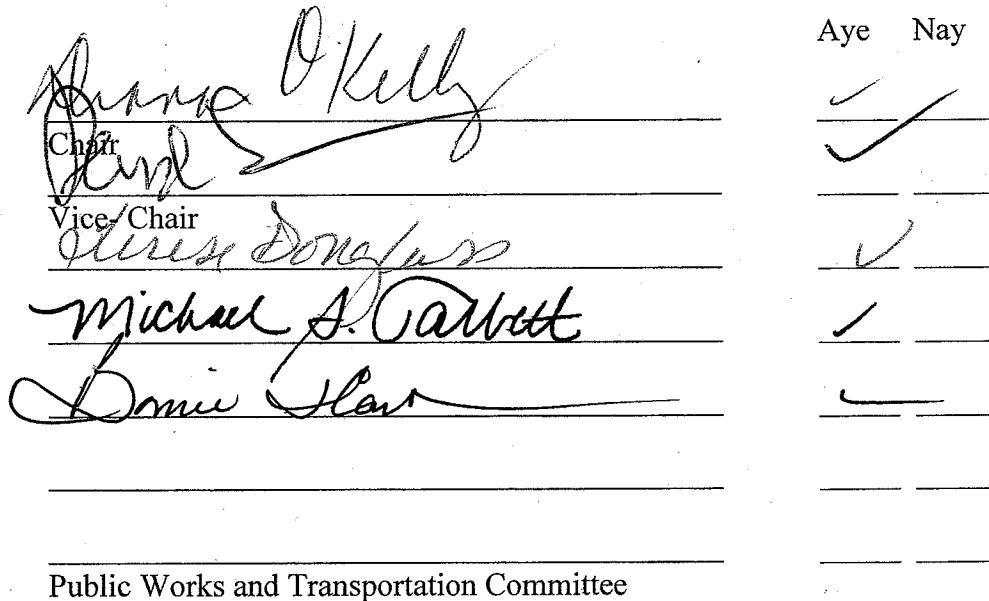 Aye Nay
Dianna O'Kelly
Chair
Vice-Chair
Therese Douglass
Michael S. Talbett
Bonnie
Public Works and Transportation Committee